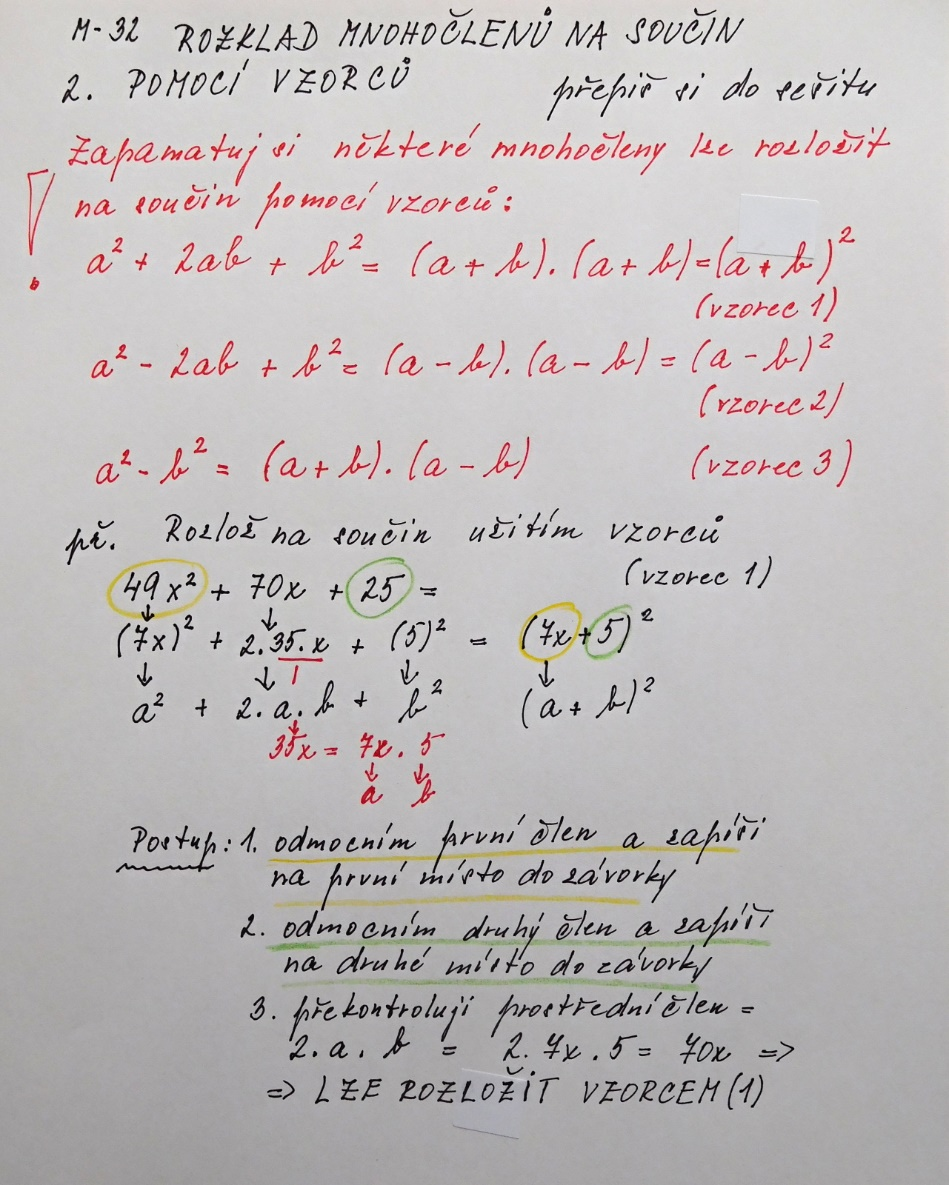 M-32 ROZKLAD MNOHOČLENŮ NA SOUČIN
2. POMOCÍ VZORCŮ přepiš si do sešitu
Zapamatuj si některé mnohočleny lze rozložit
na součin pomocí vzorců:
a² + 2ab + b² = (a + b).(a + b) = (a + b)²
(vzorec 1)
a² - 2ab + b² = (a - b).(a - b) = (a - b)²
(vzorec 2)
a² - b² = (a + b).(a - b) (vzorec 3)
př. Rozlož na součin užitím vzorců
49x² + 70x + 25 = (vzorec 1)
(7x)² + 2.35.x + (5)² = (7x + 5)²
a² + 2.a.b + b² (a + b)²
35x = 7x . 5
a b
Postup: 1. odmocním první člen a zapíši
na první místo do závorky
2. odmocním druhý člen a zapíši
na druhé místo do závorky
3. překontroluji prostřední člen =
2.a.b = 2.7x.5 = 70x =>
=> LZE ROZLOŽIT VZORCEM (1)